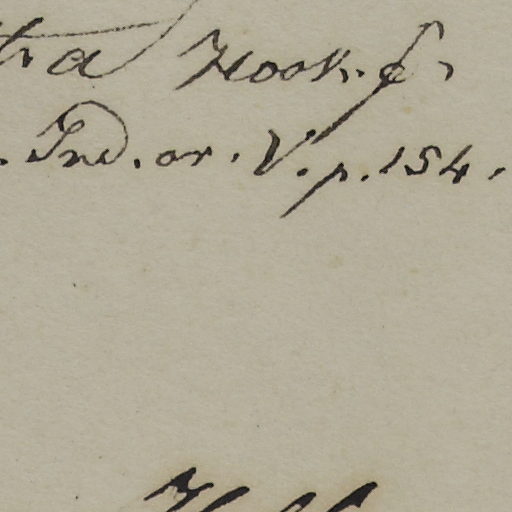 tra Hook. f.
. Ind. or. V. p. 154.